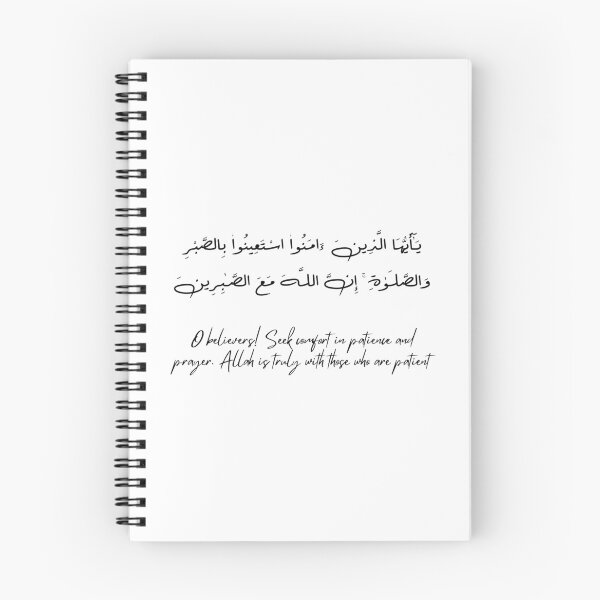 يَـٰٓأَيُّهَا الَّذِينَ ءَامَنُوا۟ اسْتَعِينُوا۟ بِالصَّبْرِ
وَالصَّلَوٰةِ ۚ إِنَّ اللَّهَ مَعَ الصَّـٰبِرِينَ
O believers! Seek comfort in patience and
prayer. Allah is truly with those who are patient